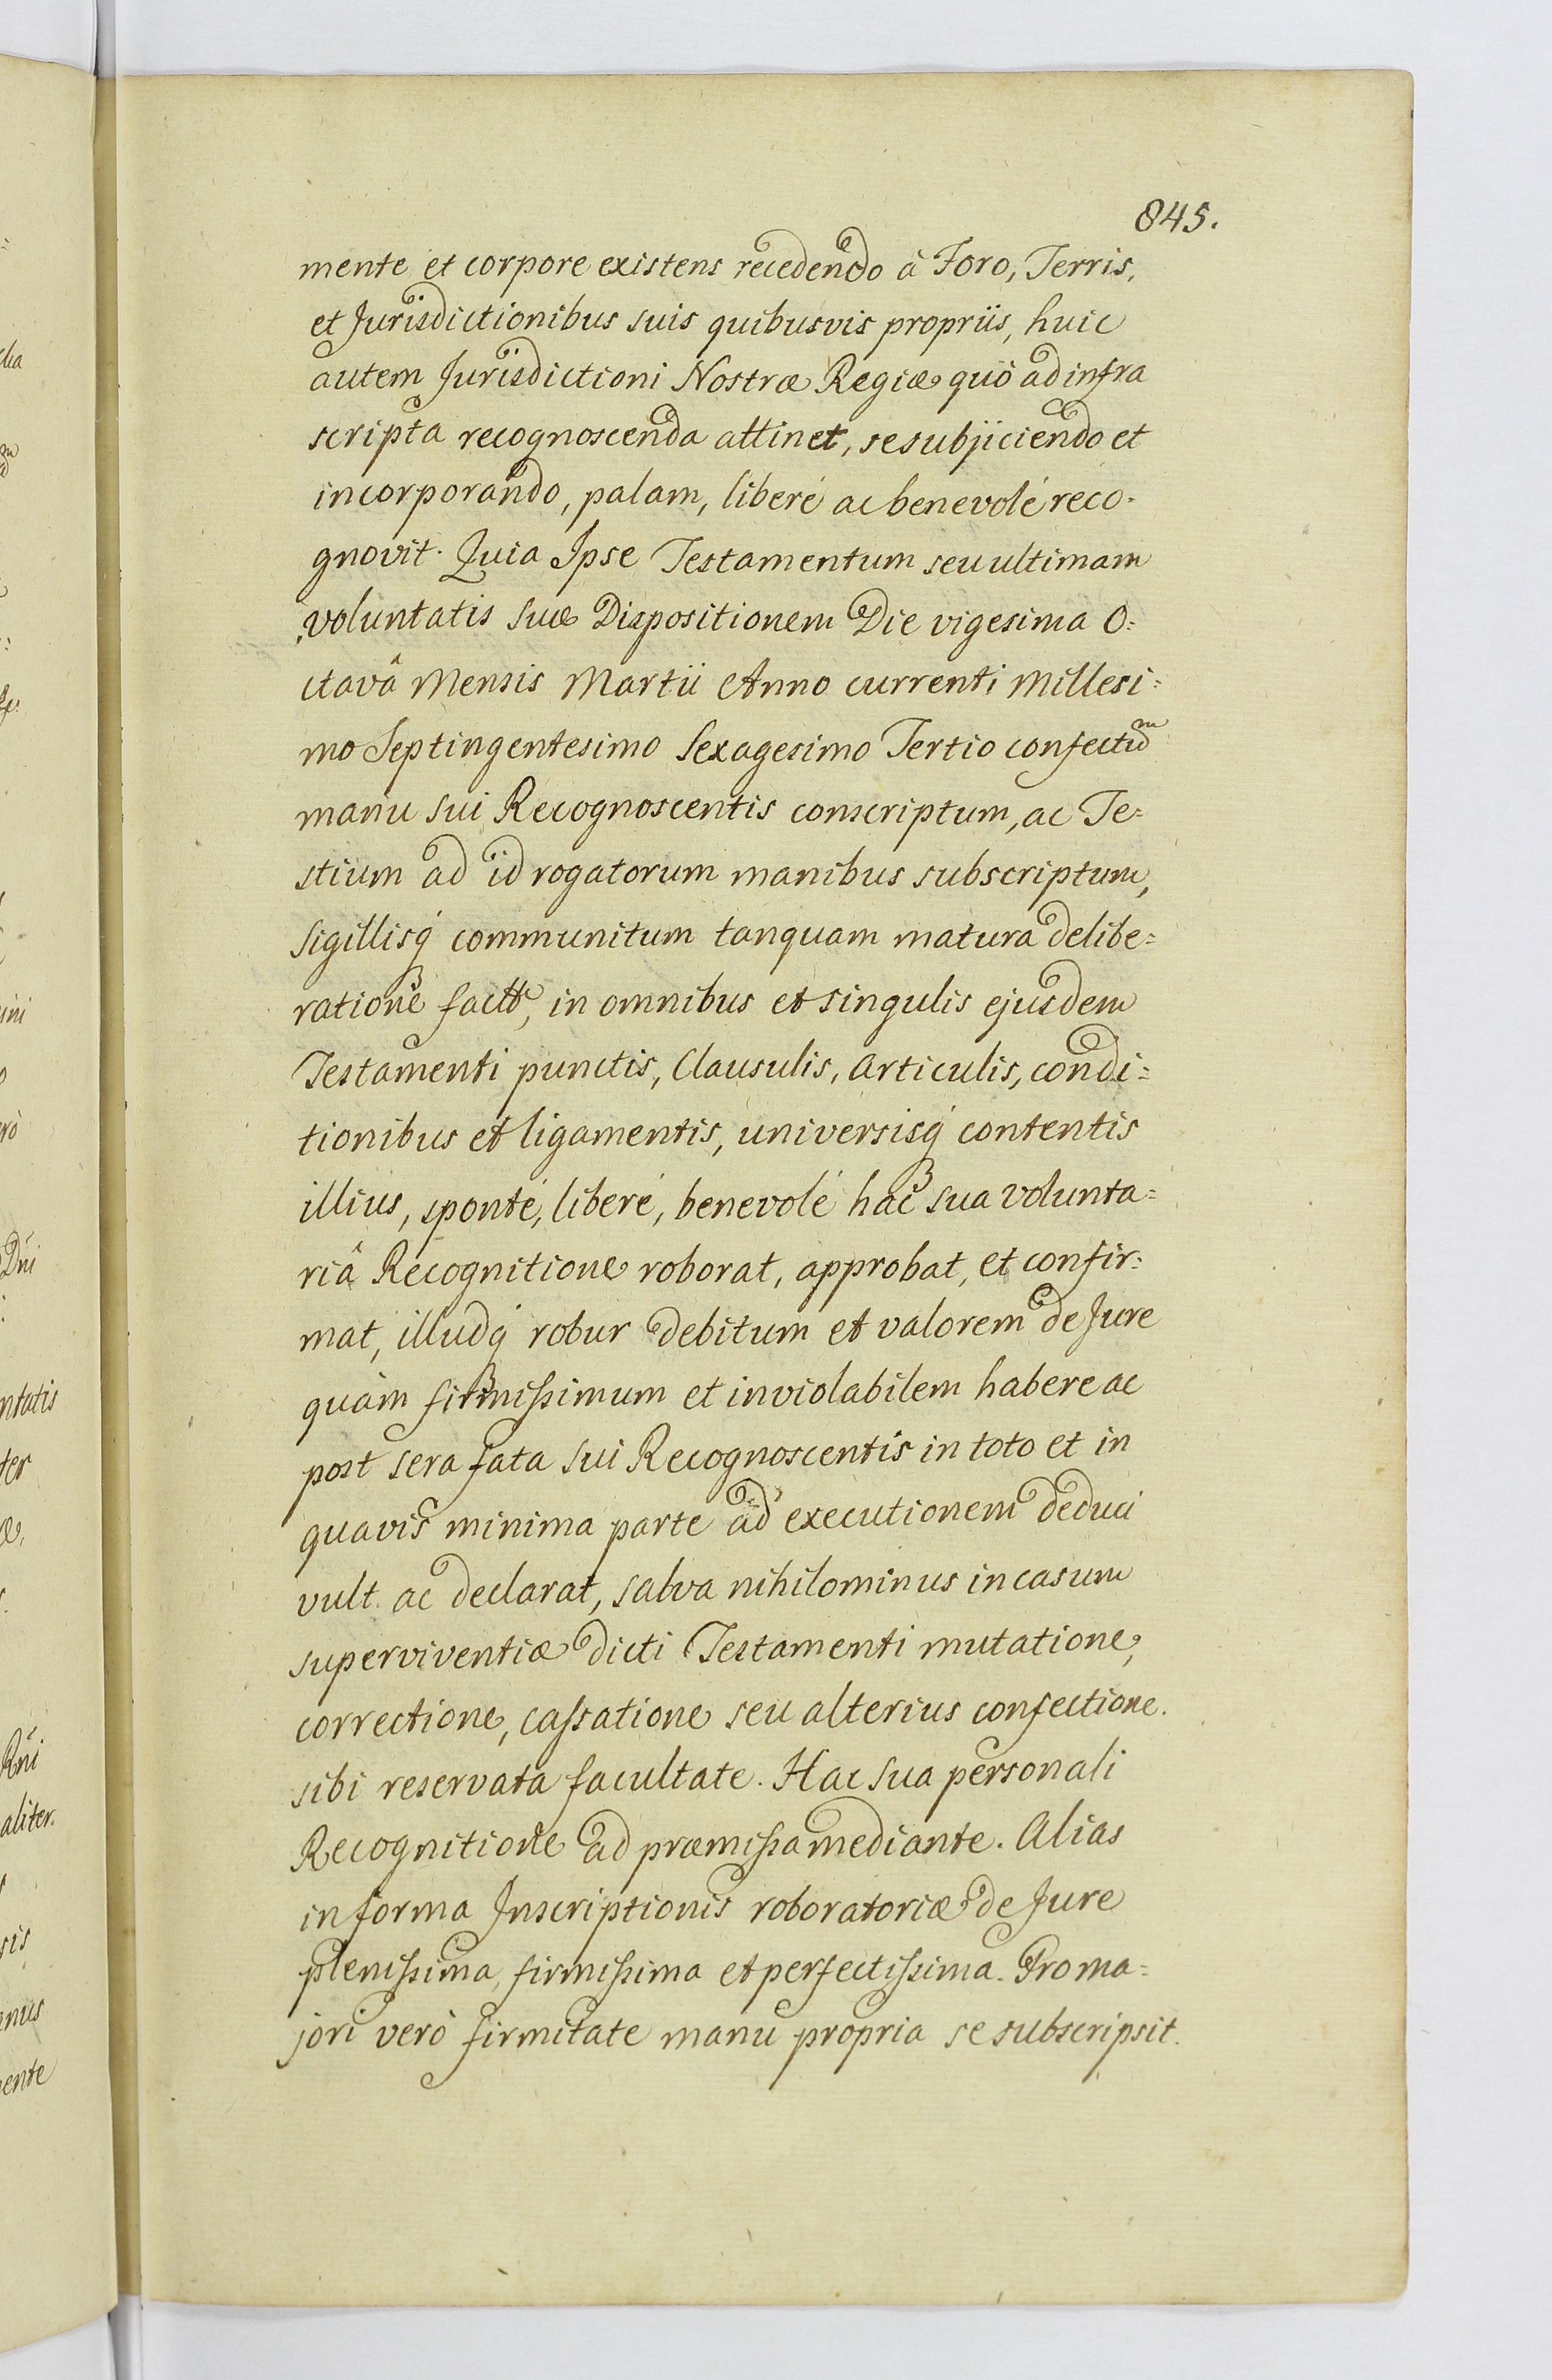 845.
mente et corpore existens recedendo à Foro, Terris,
et Jurisdictionibus suis quibusvis propriis, huic
autem Jurisdictioni Nostræ Regiæ quò ad infra
scripta recognoscenda attinet, se subjiciendo et
incorporando, palam, liberé ac benevolé reco-
gnovit. Quia Ipse Testamentum seu ultimam
voluntatis suæ Dispositionem Die vigesima O=
ctavâ Mensis Martii Anno currenti Millesi=
mo Septingentesimo Sexagesimo Tertio confectum
manu sui Recognoscentis conscriptum, ac Te=
stium ad id rogatorum manibus subscriptum,
sigillisq́ communitum tanquam matura delibe=
ratione in omnibus et singulis ejusdem
Testamenti punctis, Clausulis, Articulis, condi=
tionibus et ligamentis, universisq́ contentis
illius, sponté, liberé, benevolé hac sua volunta=
riâ Recognitione roborat, approbat, et confir=
mat, illudq́ robur debitum et valorem de Jure
quàm firmissimum et inviolabilem habere ac
post sera fata sui Recognoscentis in toto et in
quavis minima parte ad executionem deduci
vult ac declarat, salva nihilominus in casum
superviventiæ dicti Testamenti mutatione,
correctione, cassatione seu alterius confectione.
sibi reservata facultate. Hac sua personali
Recognitione ad præmissa mediante. Alias
in forma Inscriptionis roboratoriæ de Jure
plenissima, firmissima et perfectissima. Pro ma=
jori verò firmitate manu propria se subscripsit.